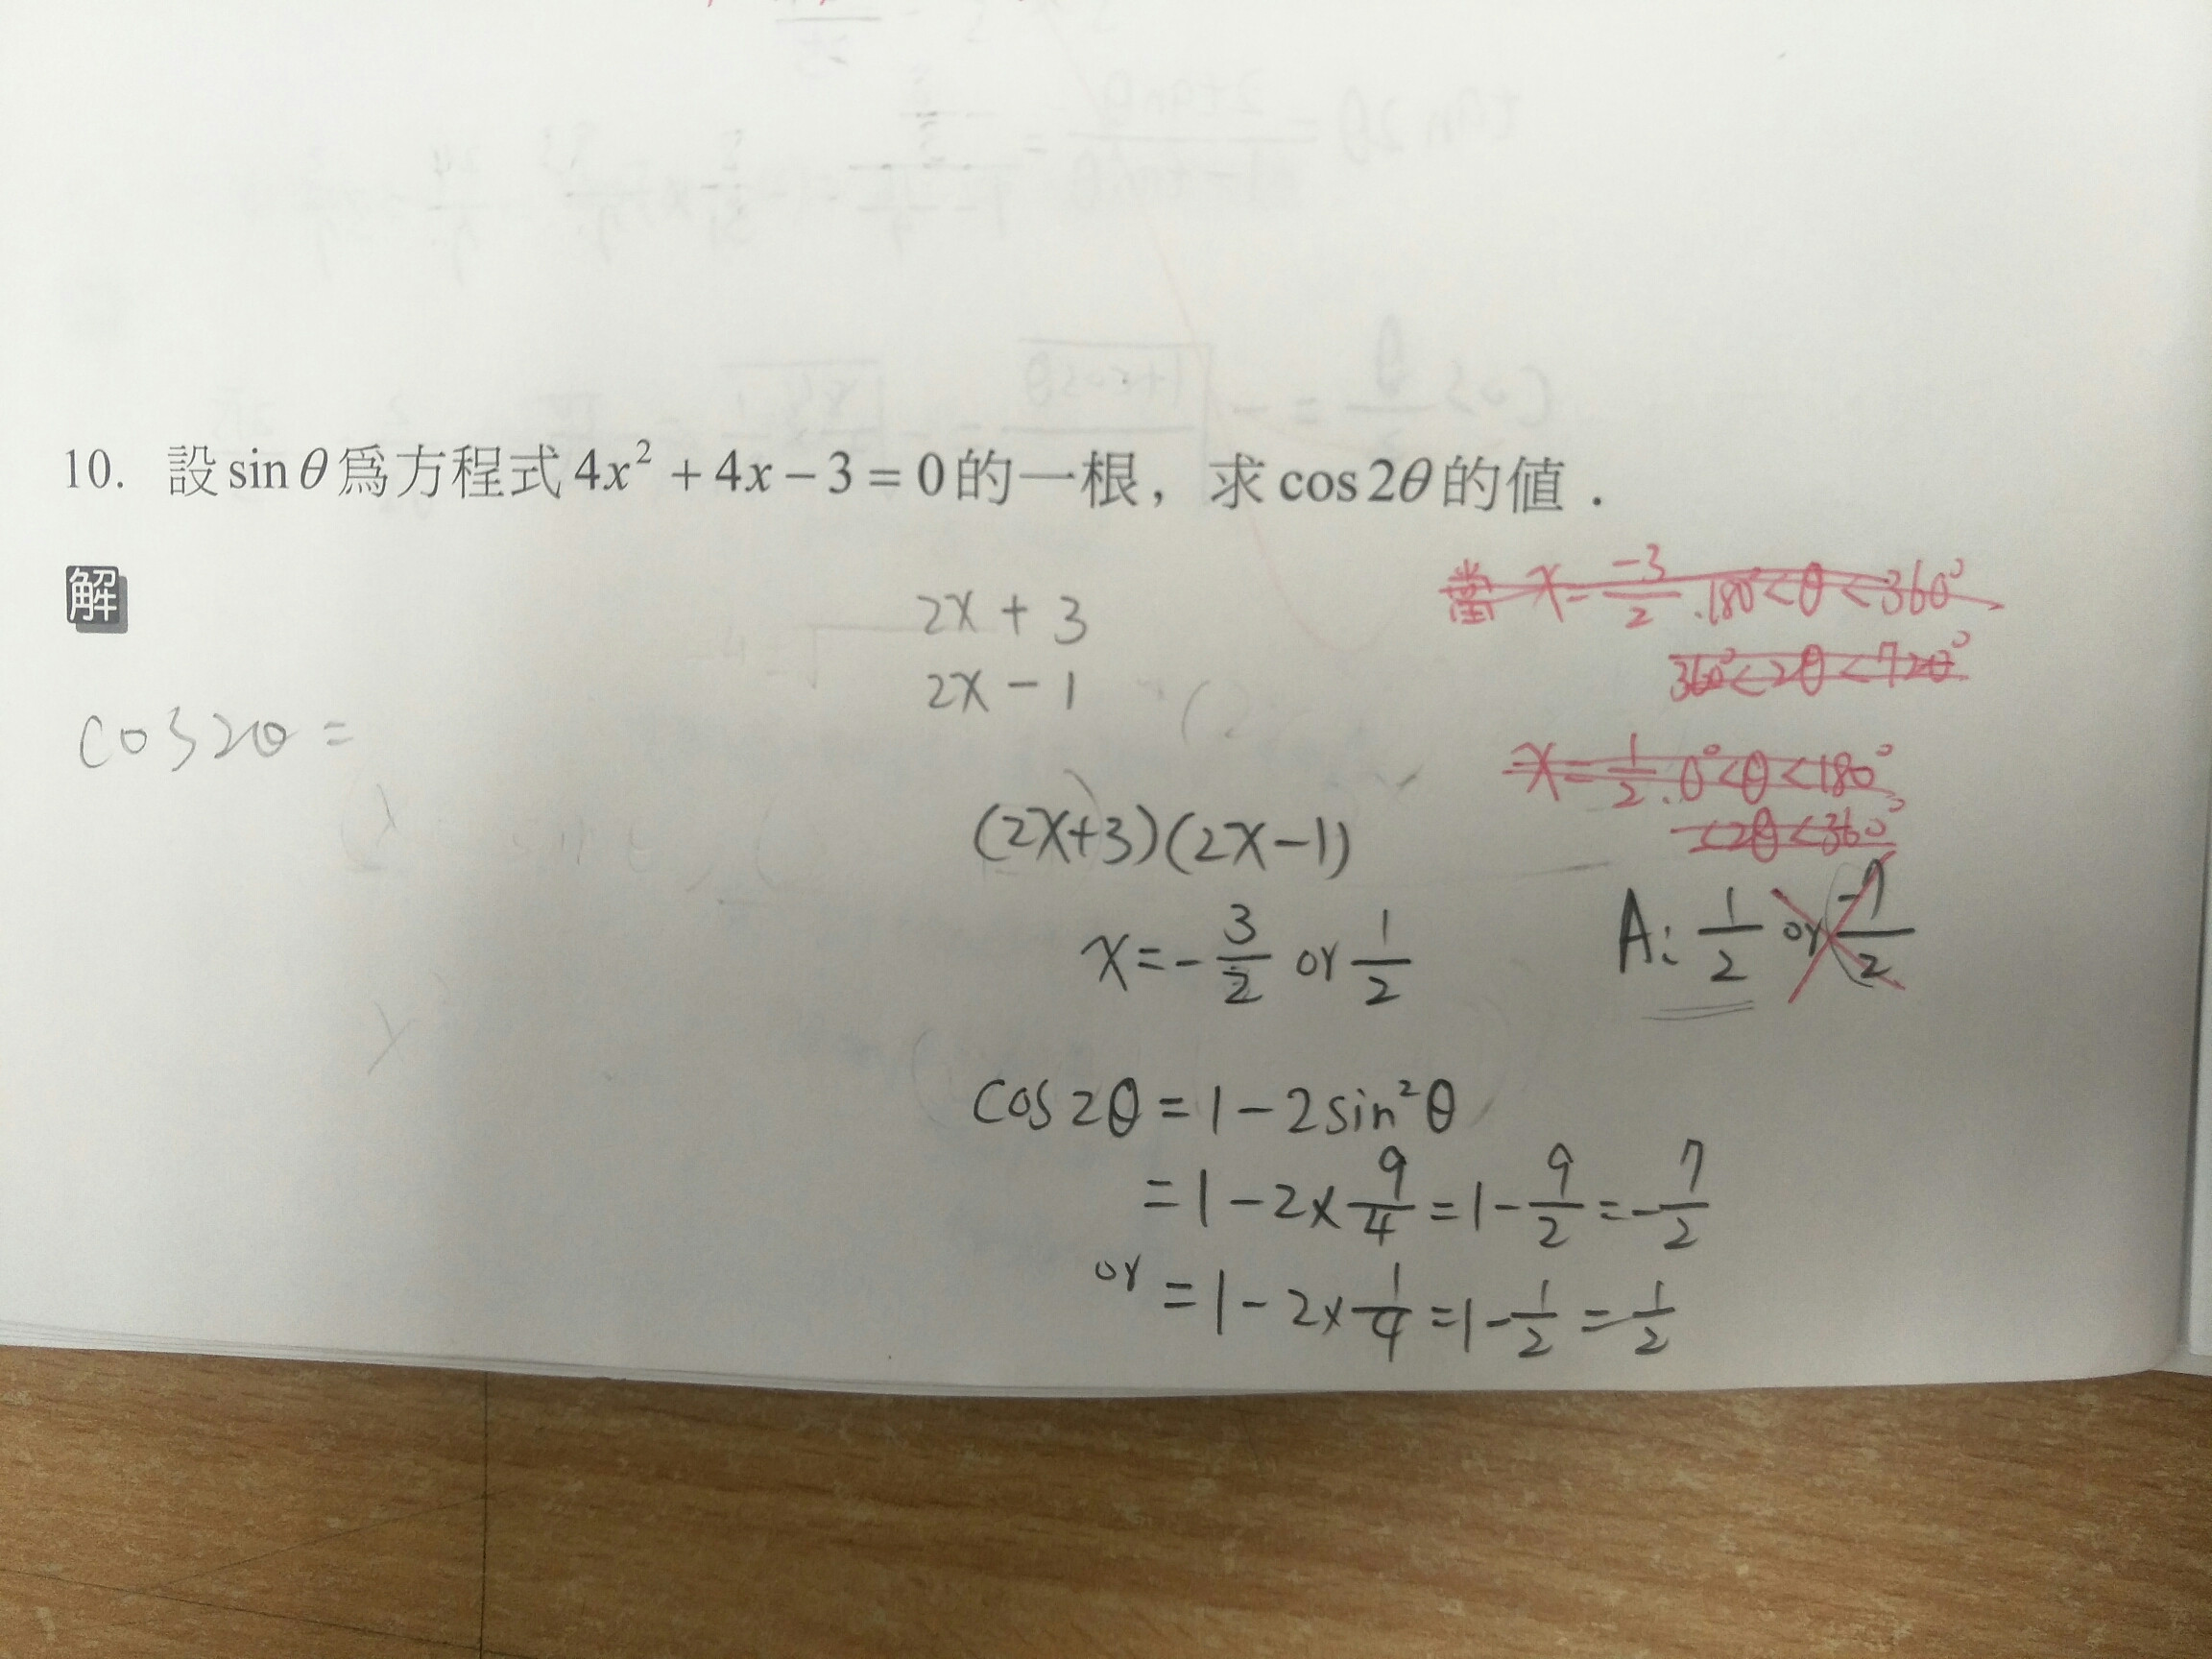 10. 設 sin θ 爲方程式 4x² + 4x − 3 = 0 的一根，求 cos 2θ 的値．
解
cos2θ =
2x + 3
2x − 1
(2x+3)(2x−1)
x = −3/2 or 1/2
cos 2θ = 1 − 2sin²θ
= 1 − 2 × 9/4 = 1 − 9/2 = −7/2
or = 1 − 2 × 1/4 = 1 − 1/2 = 1/2
當 x = −3/2 . 180° < θ < 360°
360° < 2θ < 720°
x = 1/2 . 0° < θ < 180°
< 2θ < 360°
A: 1/2 or −7/2